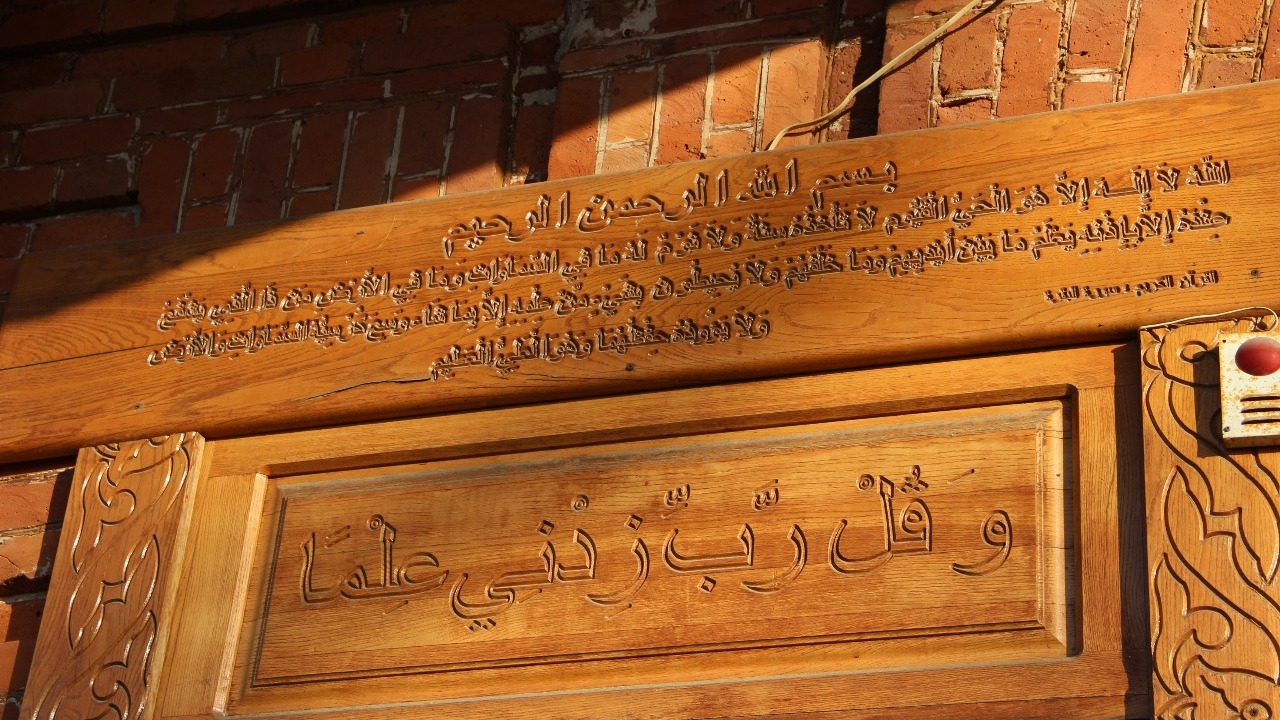 بسم الله الرحمن الرحيم
اللَّهُ لاَ إِلَـهَ إِلاَّ هُوَ الْحَيُّ الْقَيُّومُ لاَ تَأْخُذُهُ سِنَةٌ وَلاَ نَوْمٌ لَهُ مَا فِي السَّمَاوَاتِ وَمَا فِي الأَرْضِ مَنْ ذَا الَّذِي يَشْفَعُ
عِنْدَهُ إِلاَّ بِإِذْنِهِ يَعْلَمُ مَا بَيْنَ أَيْدِيهِمْ وَمَا خَلْفَهُمْ وَلاَ يُحِيطُونَ بِشَيْءٍ مِنْ عِلْمِهِ إِلاَّ بِمَا شَاءَ وَسِعَ كُرْسِيُّهُ السَّمَاوَاتِ وَالأَرْضَ
وَلاَ يَؤُودُهُ حِفْظُهُمَا وَهُوَ الْعَلِيُّ الْعَظِيمُ
القرآن الكريم : سورة البقرة
و قُلْ رَّبِّ زِدْنِي عِلْمًا